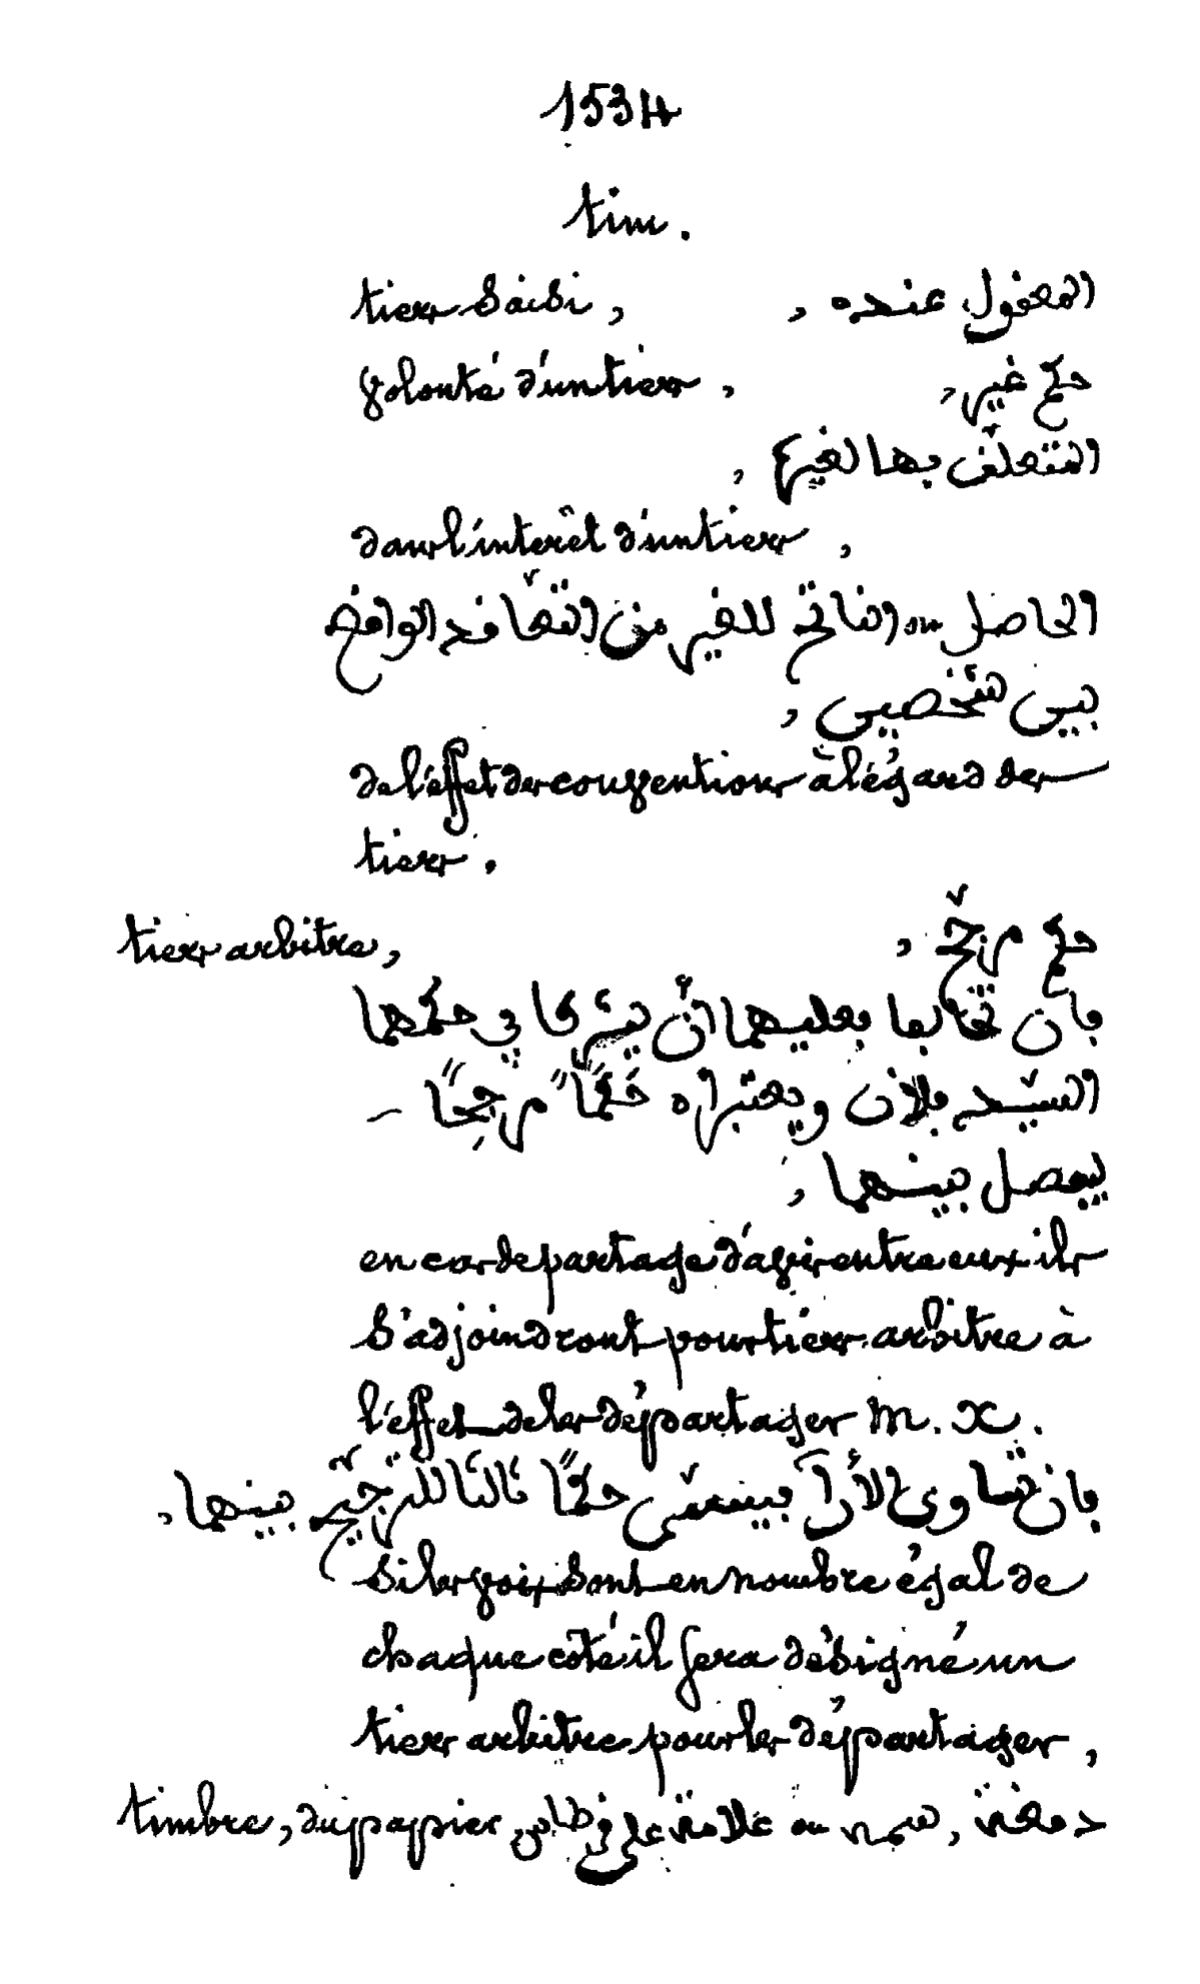 1534
tim.
tiers saisi, المعقول عنده,
volonté d'un tiers, حكم غير,
المتعلّق بها لغيرها,
dans l'intérêt d'un tiers,
الحاصل ou الناتج للغير من التعاقد الواقع
بين شخصين,
de l'effet des conventions à l'égard des
tiers.
tiers arbitre, حكم مرجّح,
فإن تخالفا فعليهما أن يشركا في حكمهما
السيّد فلان ويعتبراه حَكَمًا مرجِحًا
ليفصل بينهما,
en cas de partage d'avis entre eux ils
s'adjoindront pour tiers arbitre à
l'effet de les départager m. x.
فإن تساوى الأرآ فيسمّى حكمًا ثالثا للترجيح بينهما,
si les voix sont en nombre égal de
chaque côté il sera désigné un
tiers arbitre pour les départager,
timbre, du papier, دمغة, سمة ou علامة على قرطاس